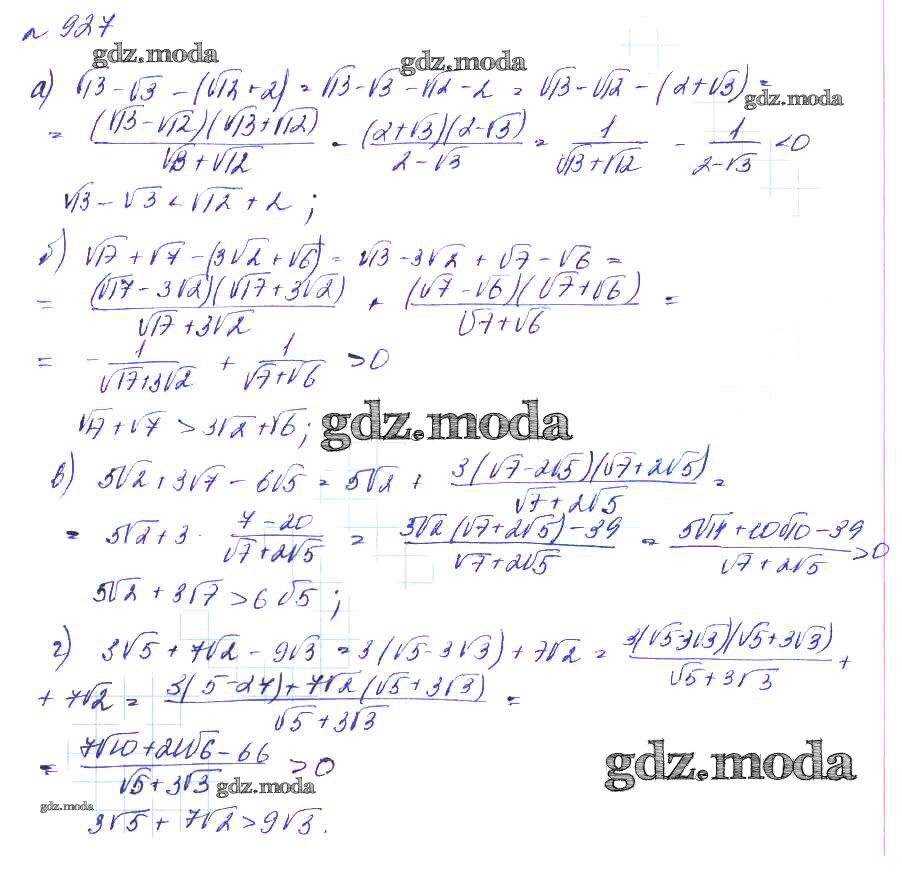 № 927
gdz.moda gdz.moda
а) √13 - √3 - (√12 + 2) = √13 - √3 - √12 - 2 = √13 - √12 - (2 + √3) =
gdz.moda
= (√13 - √12)(√13 + √12) / (√13 + √12) - (2 + √3)(2 - √3) / (2 - √3) = 1 / (√13 + √12) - 1 / (2 - √3) < 0
√13 - √3 < √12 + 2 ;
б) √17 + √7 - (3√2 + √6) = √13 - 3√2 + √7 - √6 =
= (√17 - 3√2)(√17 + 3√2) / (√17 + 3√2) + (√7 - √6)(√7 + √6) / (√7 + √6) =
= - 1 / (√17 + 3√2) + 1 / (√7 + √6) > 0
√17 + √7 > 3√2 + √6 ; gdz.moda
в) 5√2 + 3√7 - 6√5 = 5√2 + 3(√7 - 2√5)(√7 + 2√5) / (√7 + 2√5) =
= 5√2 + 3 · (7 - 20) / (√7 + 2√5) = (5√2(√7 + 2√5) - 39) / (√7 + 2√5) = (5√14 + 10√10 - 39) / (√7 + 2√5) > 0
5√2 + 3√7 > 6√5 ;
г) 3√5 + 7√2 - 9√3 = 3(√5 - 3√3) + 7√2 = 3(√5 - 3√3)(√5 + 3√3) / (√5 + 3√3) +
+ 7√2 = (3(5 - 27) + 7√2(√5 + 3√3)) / (√5 + 3√3) =
= (7√10 + 21√6 - 66) / (√5 + 3√3) > 0
gdz.moda gdz.moda
gdz.moda
3√5 + 7√2 > 9√3.